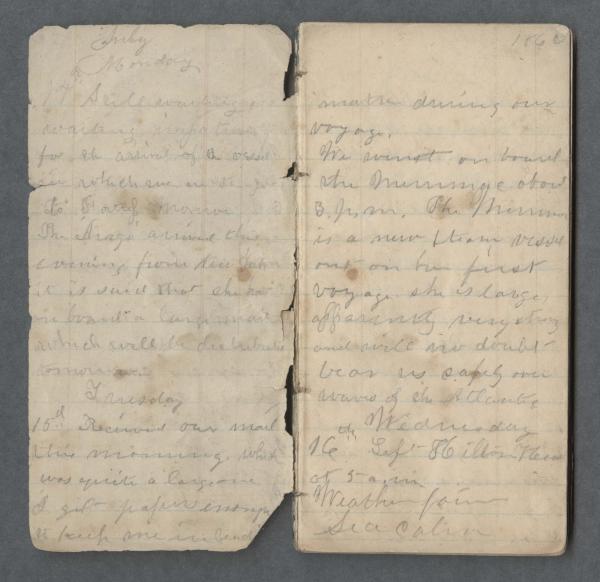 July
Monday
14 Still waiting
waiting impatiently
for the arival of the vessel
in which we are to go
to Fort Monroe
The Arago arived this
evening from New York
it is said that she has
on board a large mail
which will be distributed
tomorrow
Tuesday
15th Received our mail
this morning which
was quite a large one
I got papers enough
to keep me in read
186
matter during our
voyage.
We went on board
the Merrimac about
3. p.m. The Merrimac
is a new steam vessel
out on her first
voyage she is large,
apparently very strong
and will no doubt
bear us safely over
waves of the Atlantic
Wednesday
16th Left Hilton Head
at 5 a.m.
Weather fair
Sea calm